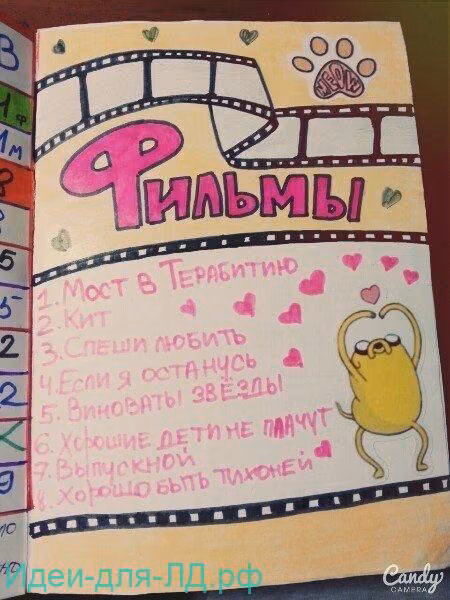 В
1ф
1м
8
5
5
2
2
9
10
MEOW
Фильмы
1. Мост в Терабитию
2. Кит
3. Спеши любить
4. Если я останусь
5. Виноваты звёзды
6. Хорошие дети не плачут
7. Выпускной
8. Хорошо быть тихоней
Идеи-для-ЛД.рф
Candy
CAMERA